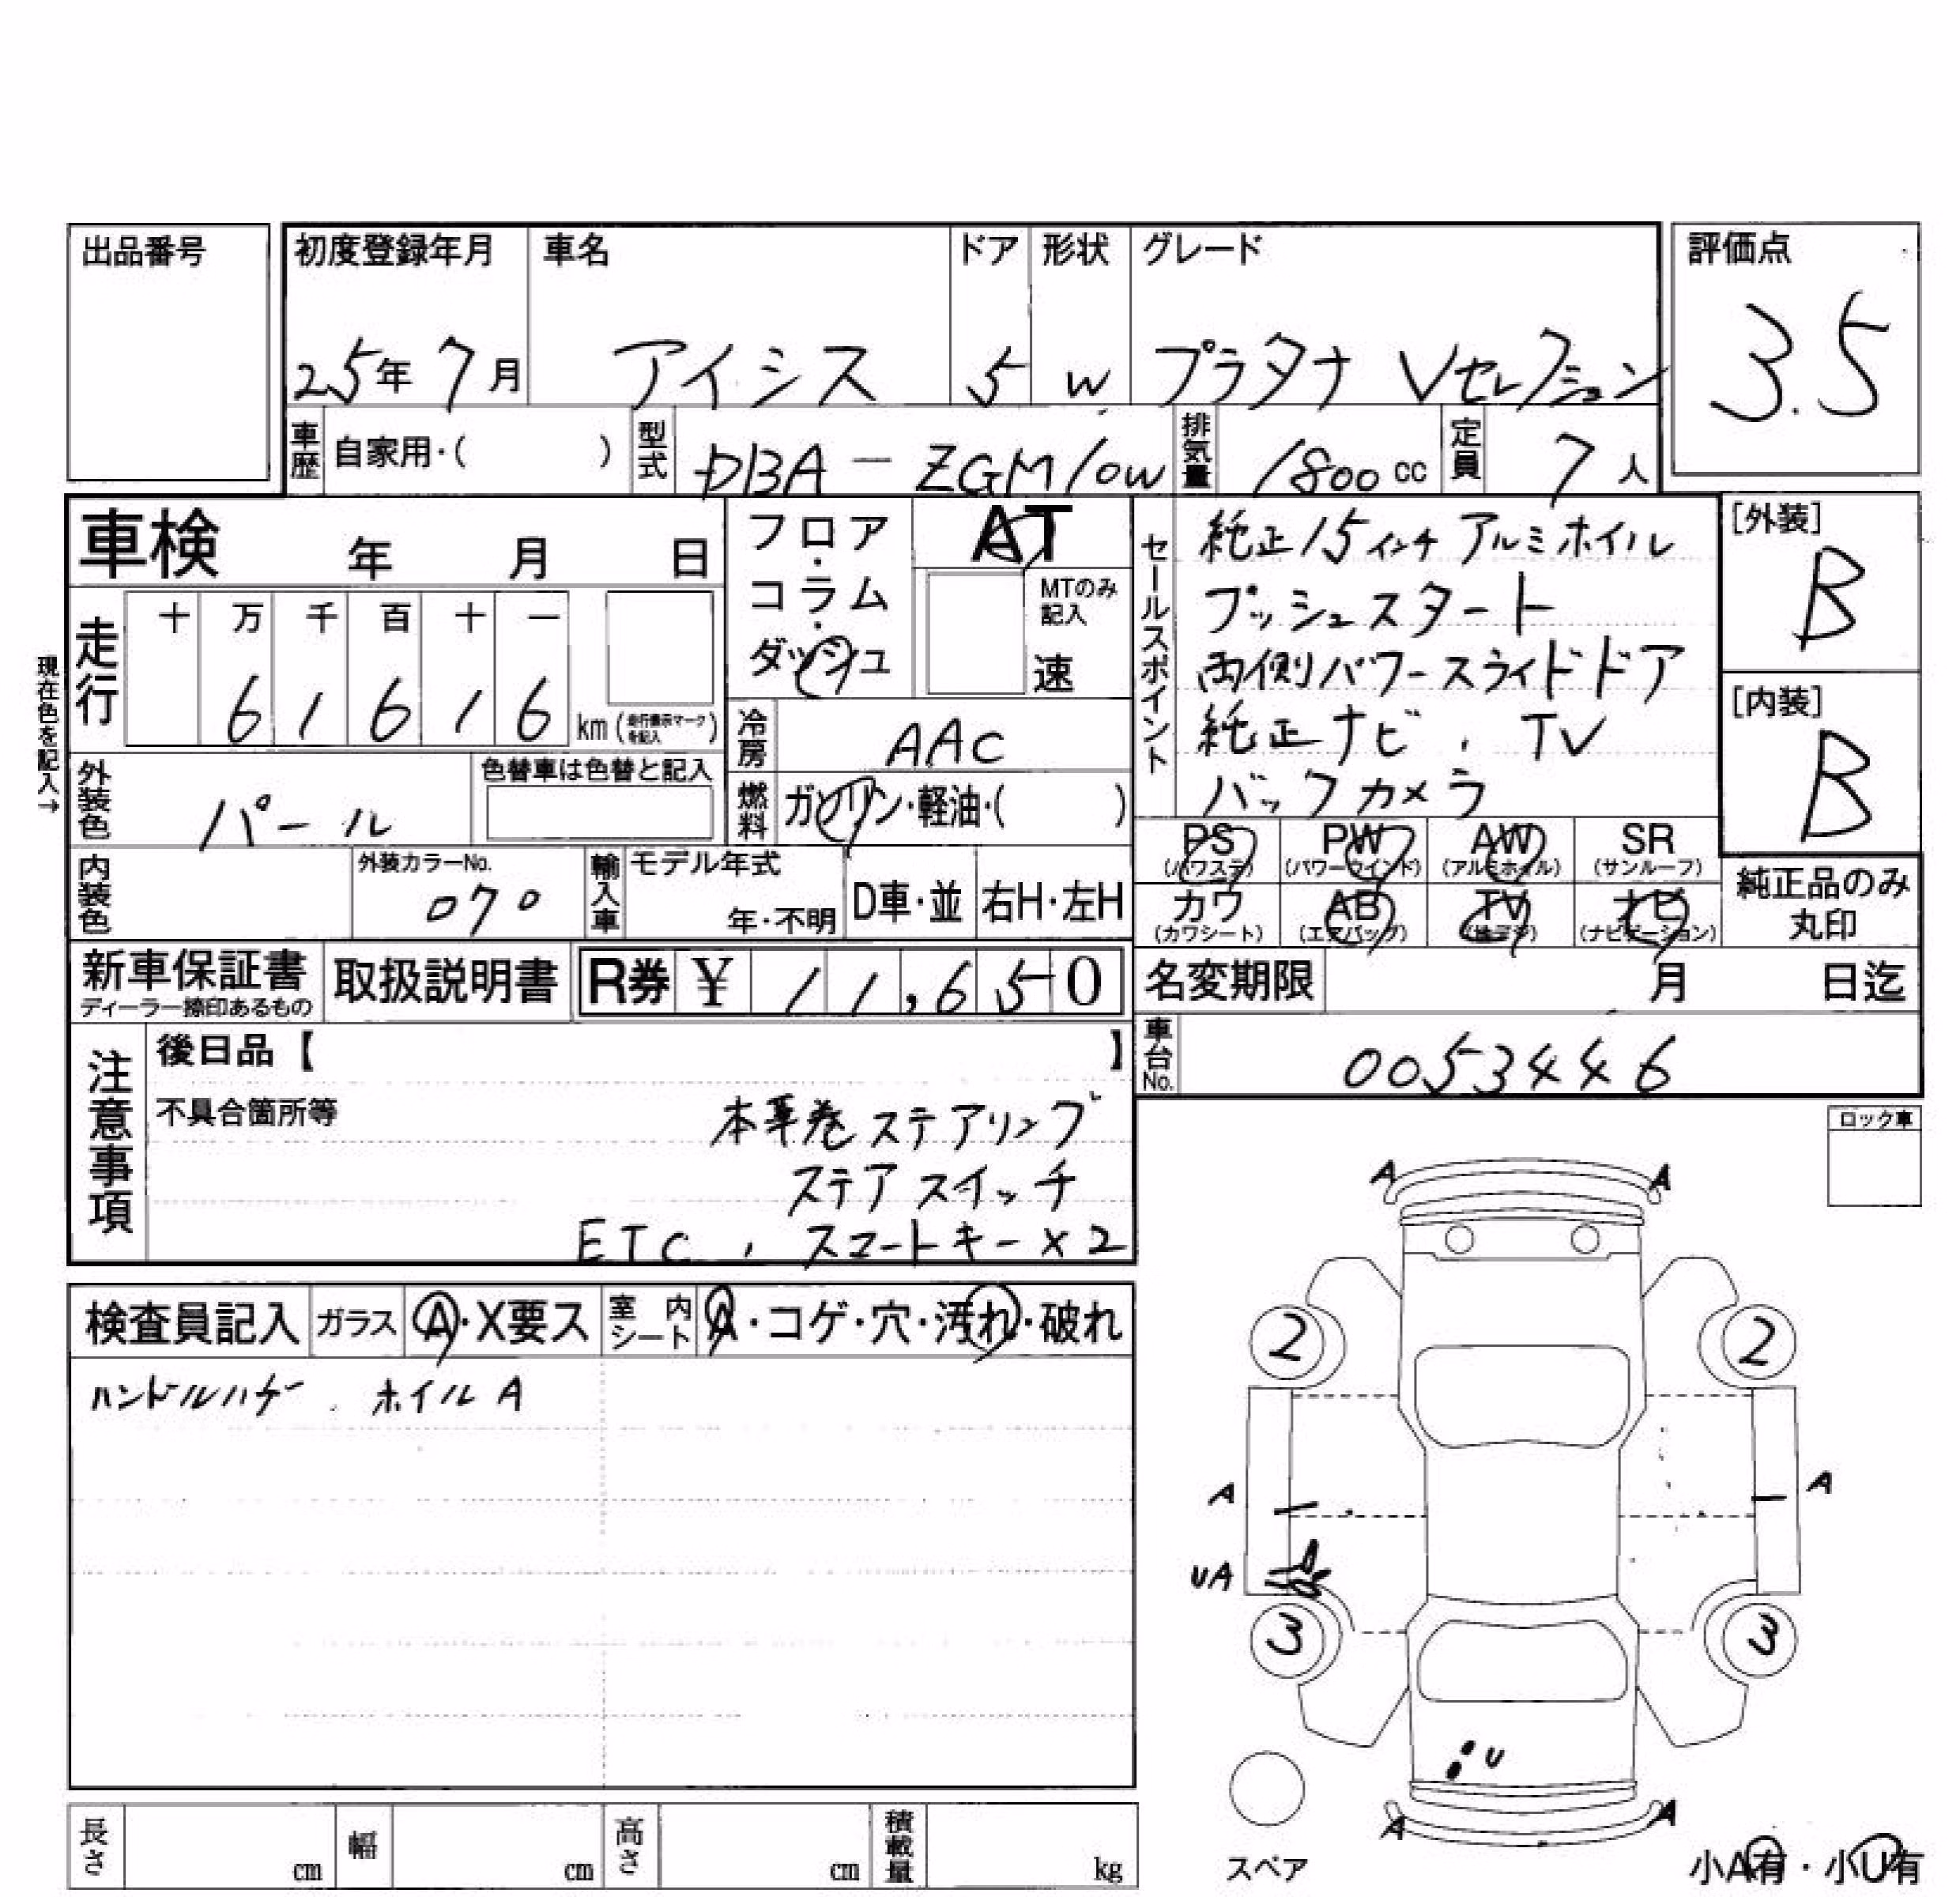 出品番号
初度登録年月 車名 ドア 形状 グレード
評価点
25年 7月 アイシス 5 W プラタナ Vセレクション
3.5
車歴 自家用・( ) 型式 DBA-ZGM10W 排気量 1800cc 定員 7人
車検 年 月 日
フロア・コラム・ダッシュ
AT
MTのみ記入
速
セールスポイント
純正15インチアルミホイル
プッシュスタート
両側パワースライドドア
純正ナビ、TV
バックカメラ
[外装]
B
[内装]
B
現在色を記入→
走行 十 万 千 百 十 一
6 1 6 1 6 km (走行表示マークを記入)
冷房 AAC
外装色 パール 色替車は色替と記入
燃料 ガソリン・軽油・( )
PS (パワステ) PW (パワーウインド) AW (アルミホイル) SR (サンルーフ)
カワ (カワシート) AB (エアバッグ) TV (地デジ) ナビ (ナビゲーション)
純正品のみ
丸印
内装色 外装カラーNo. 070 輸入車 モデル年式 年・不明 D車・並 右H・左H
新車保証書 ディーラー捺印あるもの 取扱説明書 R券 ¥ 11,650
名変期限 月 日迄
車台No. 0053446
注意事項
後日品【 】
不具合箇所等
本革巻ステアリング
ステアスイッチ
ETC、スマートキー×2
ロック車
検査員記入 ガラス A・X要ス 室内シート A・コゲ・穴・汚れ・破れ
ハンドルハゲ、ホイルA
A A
2 2
A A
UA
3 3
U
A A
スペア
小A有・小U有
長さ cm 幅 cm 高さ cm 積載量 kg